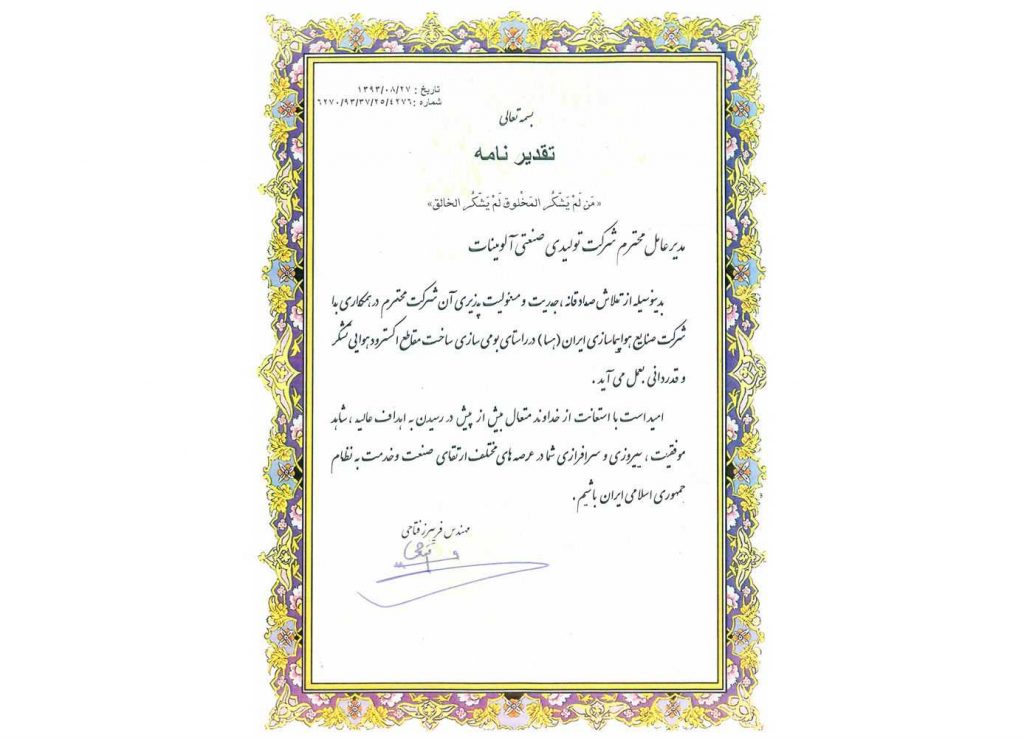 تاریخ : ۱۳۹۳/۰۸/۲۷
شماره : ۶۲۷۰/۹۳/۳۷/۲۵/۴۲۷۶
بسمه تعالی
تقدیر نامه
«مَن لَمْ یَشْکُر المَخْلوق لَمْ یَشْکُر الخالق»
مدیرعامل محترم شرکت تولیدی صنعتی آلومینات
بدینوسیله از تلاش صادقانه ، جدیت و مسئولیت پذیری آن شرکت محترم در همکاری با
شرکت صنایع هواپیماسازی ایران (هسا) در راستای بومی سازی ساخت مقاطع اکسترود هوایی تشکر
و قدردانی بعمل می آید .
امید است با استعانت از خداوند متعال بیش از پیش در رسیدن به اهداف عالیه ، شاهد
موفقیت ، پیروزی و سرافرازی شما در عرصه های مختلف ارتقای صنعت و خدمت به نظام
جمهوری اسلامی ایران باشیم .
مهندس فریبرز فتاحی